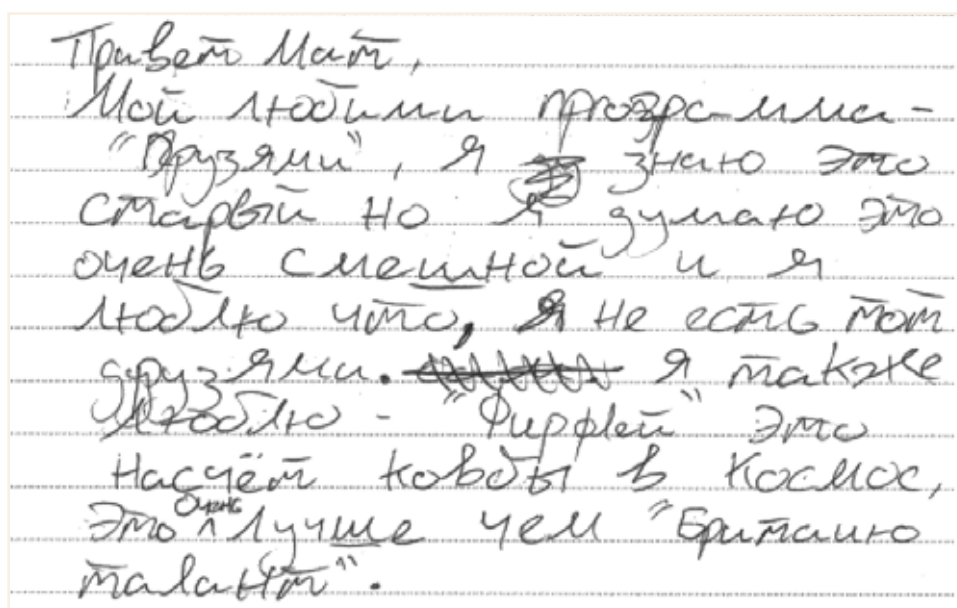 Привет Мат,
Мой любими программа -
"Друзями", я знаю это
старый но я думаю это
очень смешной и я
люблю что, я не есть тот
друзями. я также
люблю - "Фирфлей" это
насчёт ковбы в космос,
Это очень лучше чем "Британию
талант".